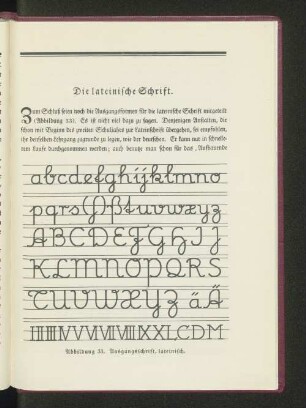 Die lateinische Schrift.
Zum Schluß seien noch die Ausgangsformen für die lateinische Schrift mitgeteilt
(Abbildung 33). Es ist nicht viel dazu zu sagen. Denjenigen Anstalten, die
schon mit Beginn des zweiten Schuljahres zur Lateinschrift übergehen, sei empfohlen,
ihr denselben Lehrgang zugrunde zu legen, wie der deutschen. Er kann nur in schnelle-
rem Laufe durchgenommen werden; auch braucht man schon für das
abcdefghijklmno
pqrs(ſ)ßtuvwxyz
ABCDEFGHIJ
KLMNOPQRS
TUVWXYZ äÄ
I II III IIII V VI VII VIII IX X L C D M
Abbildung 33. Ausgangsschrift, lateinisch.